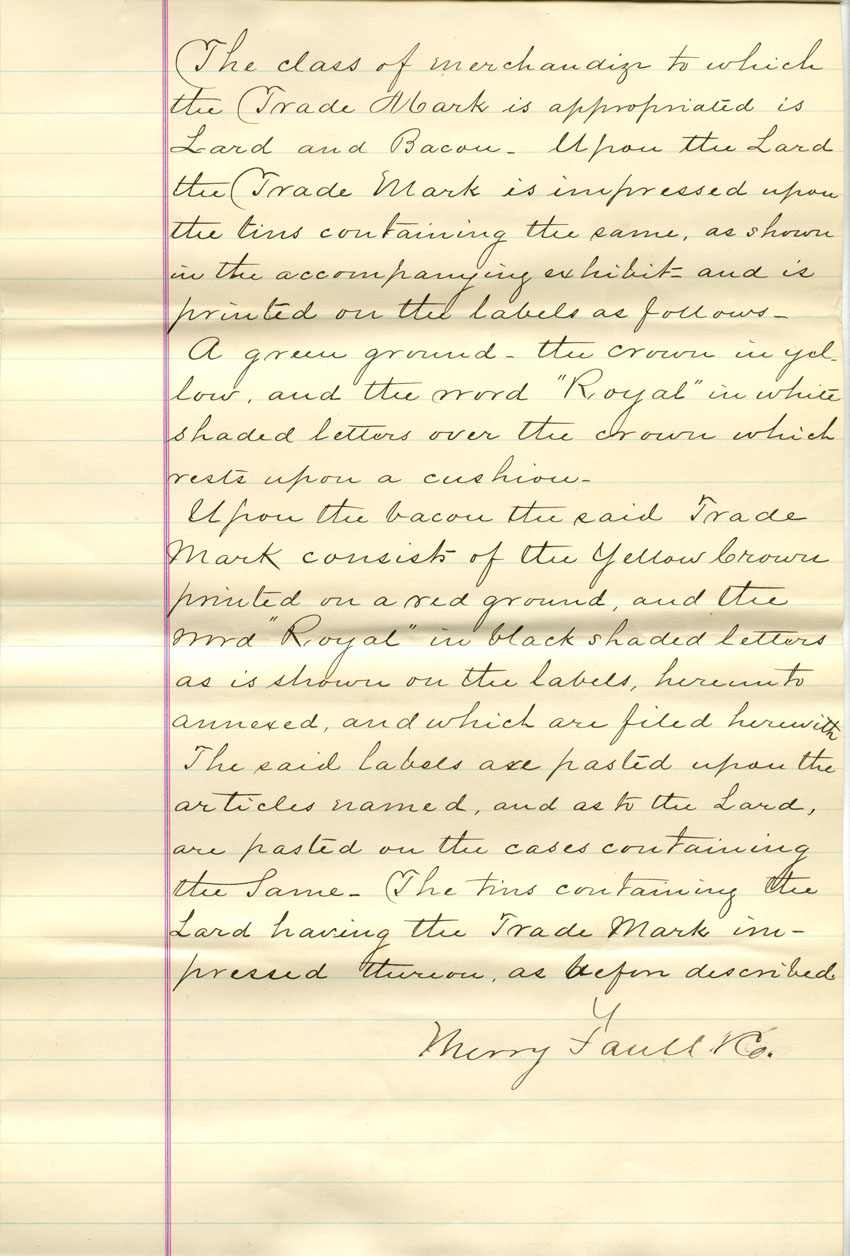 The class of merchandize to which
the Trade Mark is appropriated is
Lard and Bacon - Upon the Lard
the Trade Mark is impressed upon
the tins containing the same, as shown
in the accompanying exhibit - and is
printed on the labels as follows -
A green ground - the crown in yel-
low, and the word "Royal" in white
shaded letters over the crown which
rests upon a cushion -
Upon the bacon the said Trade
Mark consists of the Yellow Crown
printed on a red ground, and the
word "Royal" in black shaded letters
as is shown on the labels, hereunto
annexed, and which are filed herewith
The said labels are pasted upon the
articles named, and as to the Lard,
are pasted on the cases containing
the Same - The tins containing the
Lard having the Trade Mark im-
pressed thereon, as before described
Merry Faull & Co.